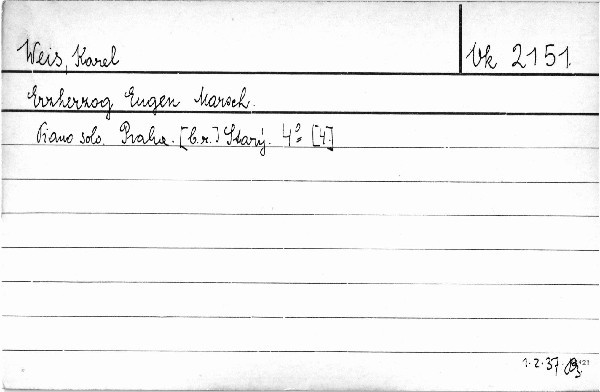 Weis, Karel
Vk 2151
Erzherzog Eugen Marsch.
Piano solo. Praha. [b.r.] Starý. 4° [4.]
1.2.37.